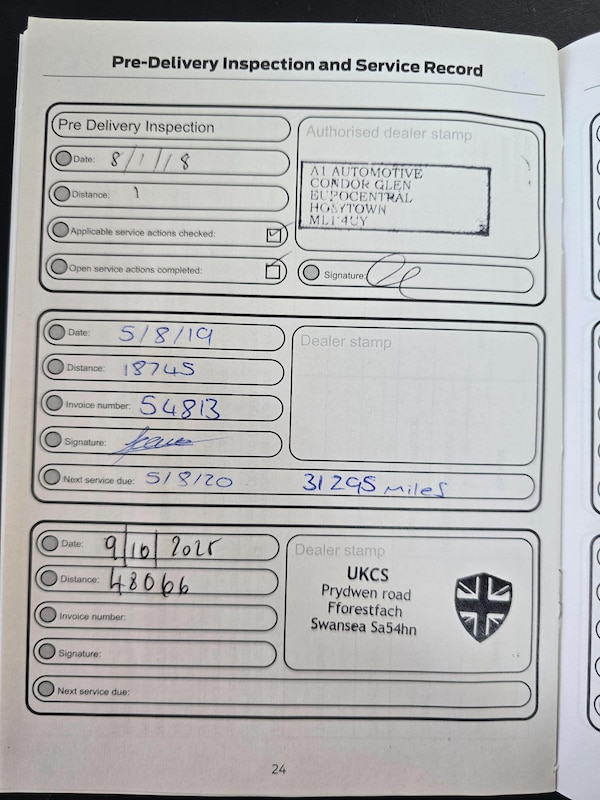 Pre-Delivery Inspection and Service Record
Pre Delivery Inspection
Date: 8/1/18
Distance: 1
Applicable service actions checked:
Open service actions completed:
Authorised dealer stamp
A1 AUTOMOTIVE
CONDOR GLEN
EUROCENTRAL
HOLYTOWN
ML1 4UY
Signature:
Date: 5/8/19
Distance: 18745
Invoice number: 54813
Signature:
Next service due: 5/8/20 31295 miles
Dealer stamp
Date: 9/10/2025
Distance: 48066
Invoice number:
Signature:
Next service due:
Dealer stamp
UKCS
Prydwen road
Fforestfach
Swansea Sa54hn
24